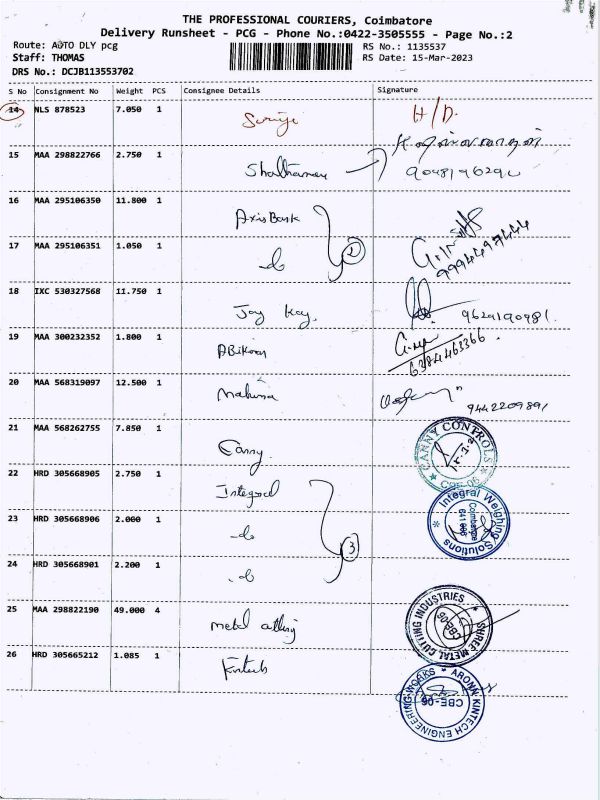 THE PROFESSIONAL COURIERS, Coimbatore
Delivery Runsheet - PCG - Phone No.:0422-3505555 - Page No.:2
Route: AUTO DLY pcg
RS No.: 1135537
Staff: THOMAS
RS Date: 15-Mar-2023
DRS No.: DCJB113553702
S No Consignment No Weight PCS Consignee Details Signature
14 NLS 878523 7.050 1 H/D.
15 MAA 298822766 2.750 1
16 MAA 295106350 11.800 1 Axis Bank
17 MAA 295106351 1.050 1 2 9994497444
18 IXC 530327568 11.750 1 Jay Kay. 9629190981.
19 MAA 300232352 1.800 1 6384463366
20 MAA 568319097 12.500 1 9442209891
21 MAA 568262755 7.850 1 Canny. CANNY CONTROLS
22 HRD 305668905 2.750 1 Integral
23 HRD 305668906 2.000 1 3 Integral Weighing Solutions Coimbatore
24 HRD 305668901 2.200 1
25 MAA 298822190 49.000 4 metal cutting SHREE METAL CUTTING INDUSTRIES CBE-06
26 HRD 305665212 1.085 1 Kintech ARONN KINTECH ENGINEERING WORKS CBE-06